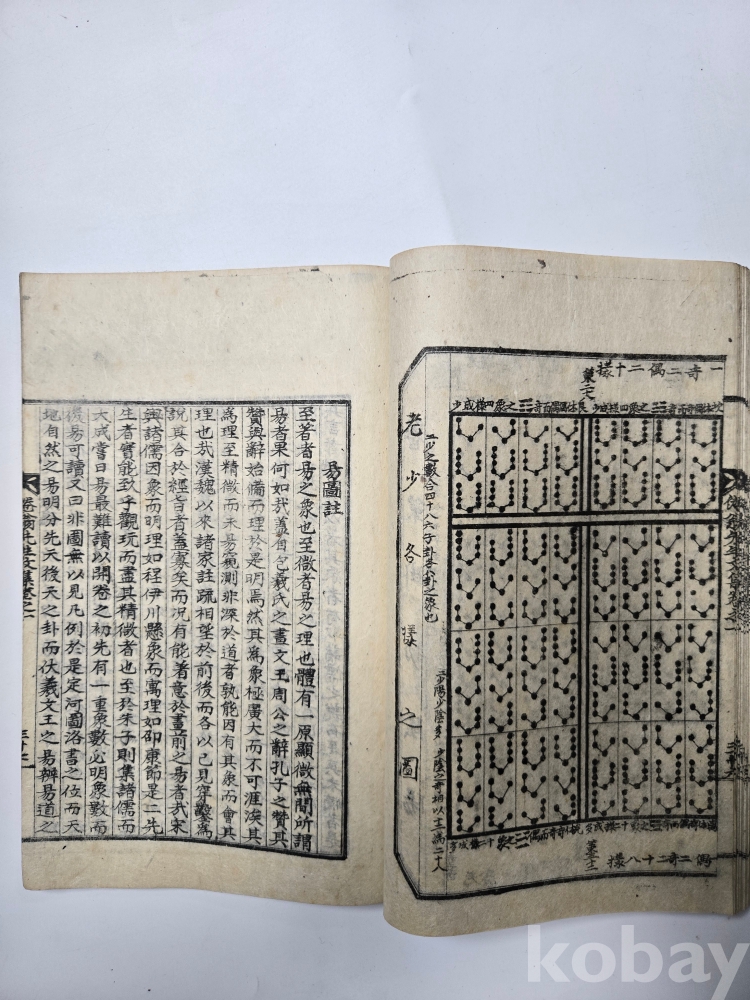 一奇二偶二十樣
偶二奇二十八樣
老少各樣之圖
易圖註
至著者易之象也至微者易之理也體有一原顯微無間所謂
易者果何如哉蓋自包羲氏之畫文王周公之辭孔子之贊其
贊與辭始備而理於是明焉然其爲象極廣大而不可涯涘其
爲理至精微而未易窺測非深於道者孰能因有其象而會其
理也哉漢魏以來諸家註疏相望於前後而各以已見穿鑿爲
說其合於經旨者蓋寡矣而况有能著意於畫前之易者哉宋
興諸儒因象而明理如程伊川懸象而寓理如邵康節是二先
生者實能致乎觀玩而盡其精微者也至於朱子則集諸儒而
大成嘗曰易最難讀以開卷之初先有一重象數必明象數而
後易可讀又曰非圖無以見凡例於是定河圖洛書之位而天
地自然之易明分先天後天之卦而伏羲文王之易辨易道之
先生文集卷之一
kobay